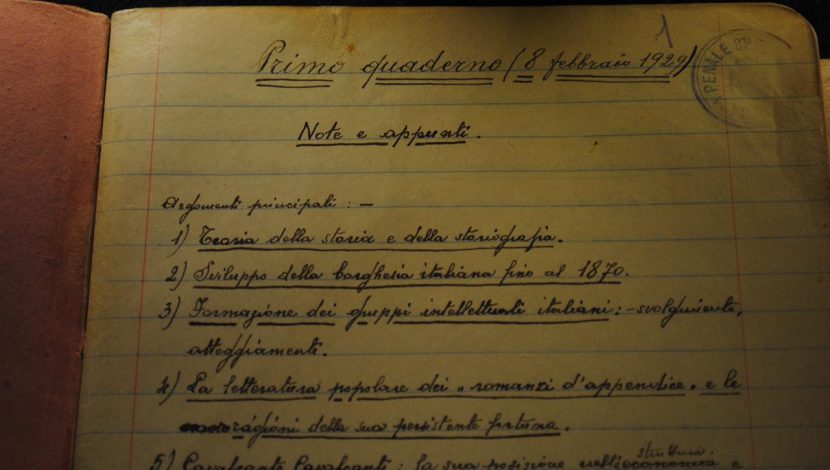 1
Primo quaderno (8 febbraio 1929)
PENALE SP
Note e appunti.
Argomenti principali : —
1) Teoria della storia e della storiografia.
2) Sviluppo della borghesia italiana fino al 1870.
3) Formazione dei gruppi intellettuali italiani: – svolgimento,
atteggiamenti.
4) La letteratura popolare dei „romanzi d'appendice„ e le
ragioni della sua persistente fortuna.
struttura
5) Cavalcante Cavalcanti : la sua posizione nell' economia e